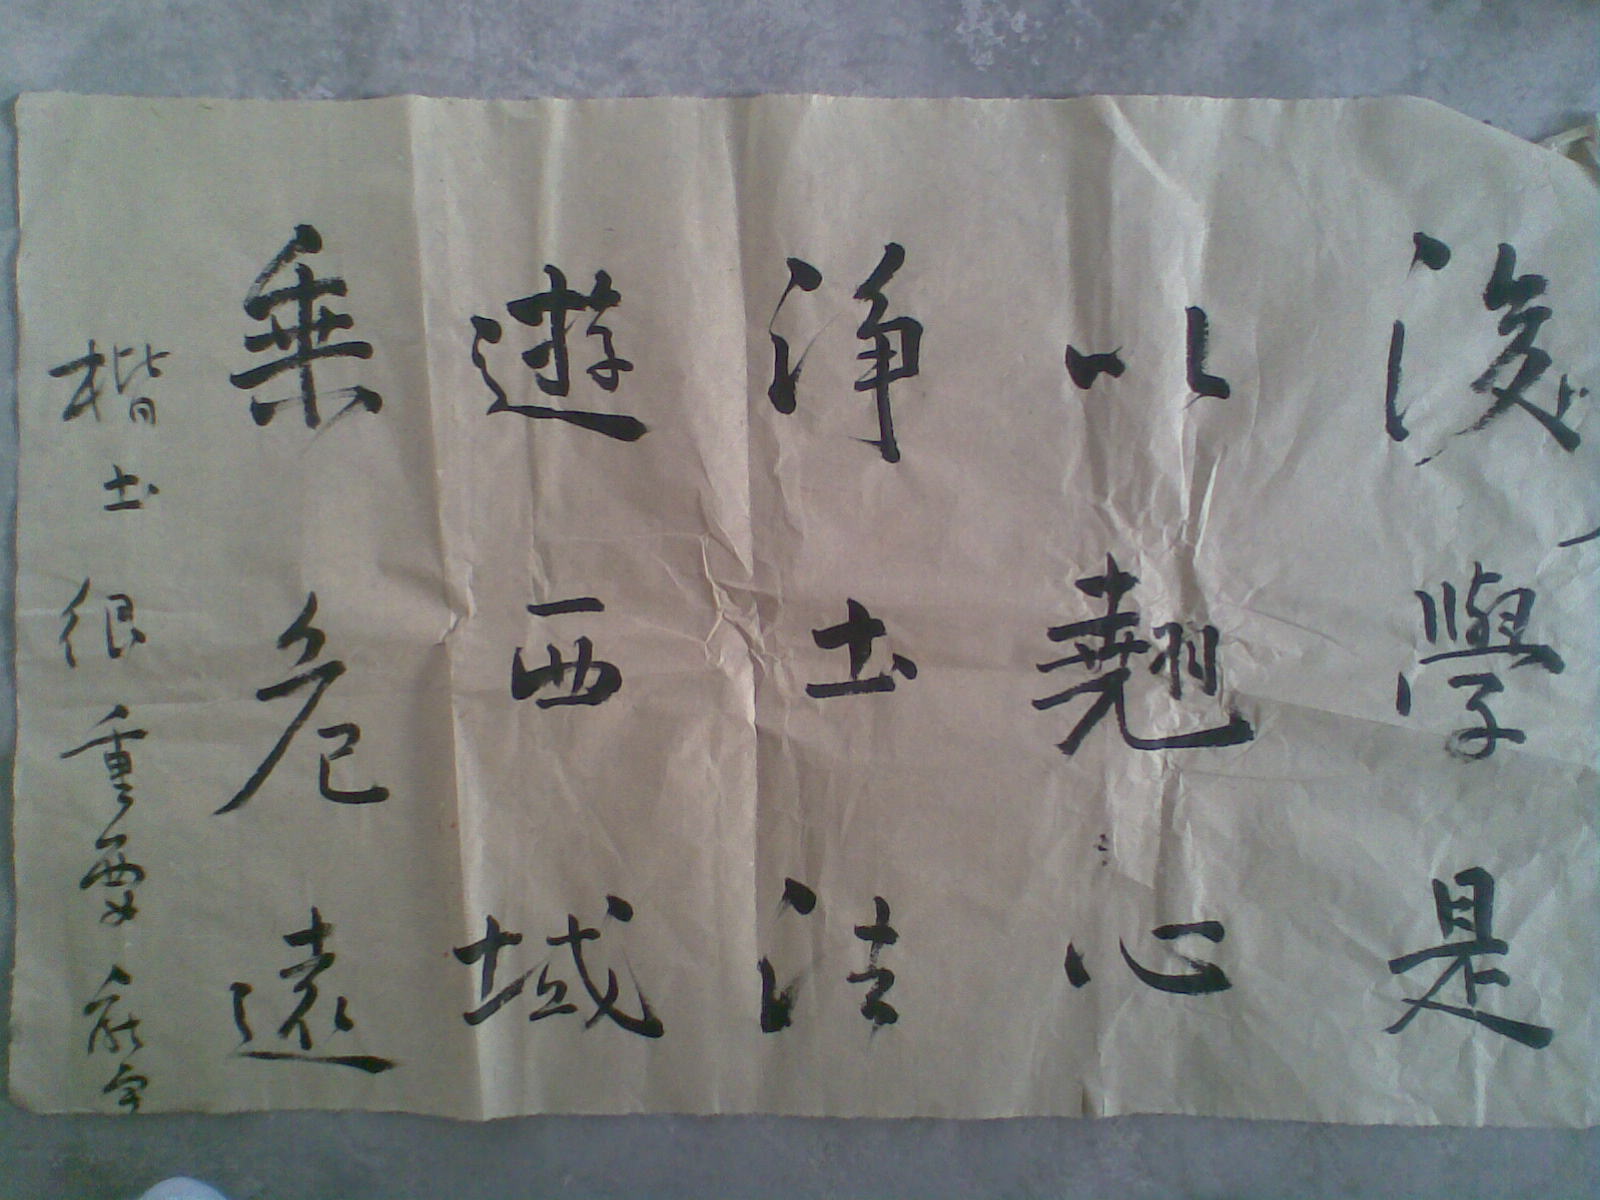 後學是
以翹心
淨土法
遊西域
乗危遠
楷土很重要